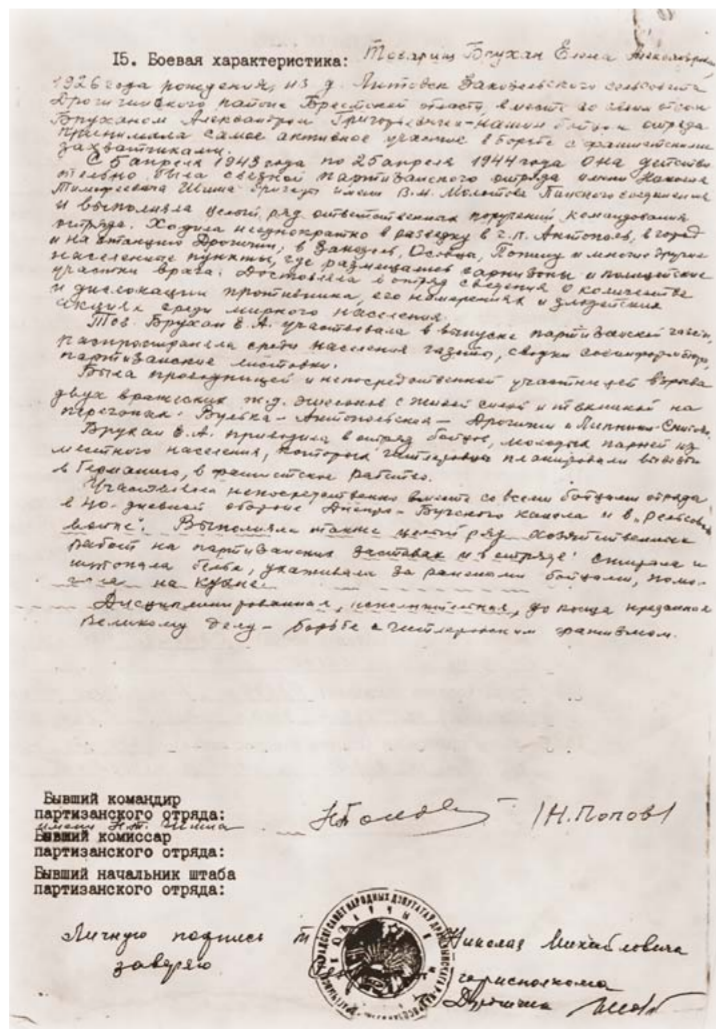 15. Боевая характеристика: Товарищ Брухан Елена Александровна
1926 года рождения, из д. Литовск Закозельского сельсовета
Дрогичинского района Брестской области, вместе со своим отцом
Бруханом Александром Григорьевичем – нашим бойцом отряда
принимала самое активное участие в борьбе с фашистскими
захватчиками.
С 5 апреля 1943 года по 25 апреля 1944 года она действи
тельно была связной партизанского отряда имени
Тимофеевича Шиша бригады имени В.М. Молотова Пинского соединения
и выполняла целый ряд ответственных поручений командования
отряда. Ходила неоднократно в разведку в г.п. Антополь, в город
и на станцию Дрогичин, в Закозель, Осовцы, и много другие
населенные пункты, где размещались гарнизоны и полицейские
участки врага. Доставляла в отряд сведения о количестве
и дислокации противника, его намерениях и злодейских
акциях среди мирного населения.
Тов. Брухан Е.А. участвовала в выпуске партизанской газеты,
распространяла среди населения газеты, сводки совинформбюро,
партизанские листовки.
Была проводницей и непосредственной участницей взрыва
двух вражеских ж.д. эшелонов с живой силой и техникой на
перегонах: Вулька – Антопольская – Дрогичин и
Брухан Е.А. приводила в отряд бойцов, молодых парней из
местного населения, которых гитлеровцы планировали вывезти
в Германию, в фашистское рабство.
Участвовала непосредственно вместе со всеми бойцами отряда
в 40-дневной обороне Днепро-Бугского канала и в „Рельсовой
войне“. Выполняла также целый ряд хозяйственных
работ на партизанских заставах и в отряде: стирала и
штопала белье, ухаживала за ранеными бойцами, помо-
гала на кухне.
Дисциплинированная, исполнительная, до конца преданная
Великому делу – борьбе с гитлеровским фашизмом.
Бывший командир
партизанского отряда:
имени Н.Т. Шиша
/Н. Попов/
Бывший комиссар
партизанского отряда:
Бывший начальник штаба
партизанского отряда:
Личную подпись Николая Михайловича
заверяю
горисполкома
Дрогичина